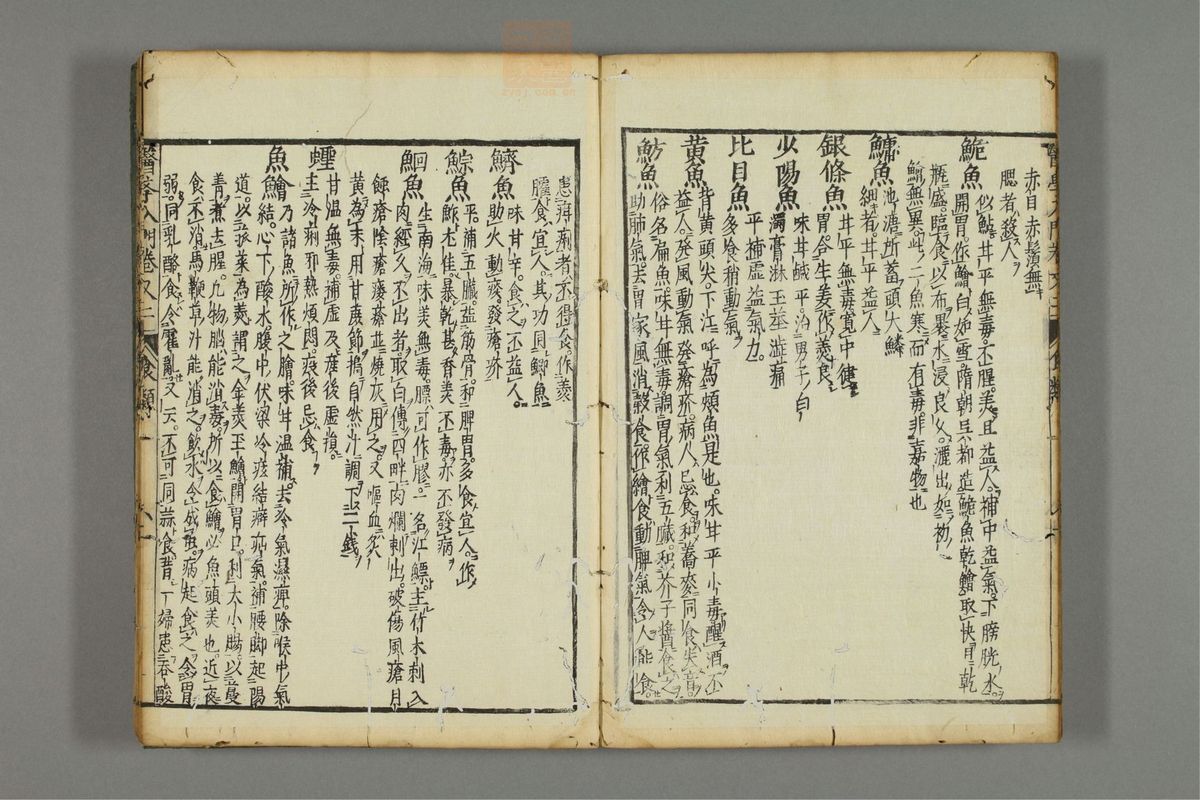 赤目赤鬚無
腮者殺人
鮠魚似鯰甘平無毒不腥美且益人補中益氣下膀胱水
開胃作鱠白如雪隋朝吳都造鮠魚乾鱠取快日乾
瓶盛臨食以布裹水浸良久灑出如初
鱅魚池溏所蓄頭大鱗
細者甘平益人
鱅魚黑此二魚寒而有毒非嘉物也
銀條魚甘平無毒寬中健
胃合生姜作羹良
少陽魚味甘鹹平治男子白
濁膏淋玉莖澁痛
比目魚平補虛益氣力
多飡稍動氣
黄魚背黄頭尖下江呼為頰魚是也味甘平小毒醒酒不
益人發風動氣發瘡疥病人忌食和蕎麥同食失音
魴魚俗名扁魚味甘無毒調胃氣利五臟和芥子醬食之
助肺氣去胃家風消穀食作鱠食動脾氣令人能食
患疳痢者不得食作羹
臛食宜人其功同鯽魚
鱭魚味甘辛食之不益人
助火動痰發瘡疥
鯮魚平補五臟益筋骨和脾胃多食宜人作
鮓尤佳暴乾甚香美不毒亦不發病
鮰魚生南海味美無毒膘可作膠一名江鰾主竹木刺入
肉經久不出者取白傅四畔肉爛刺出破傷風瘡月
蝕瘡陰瘡瘻瘡並燒灰用之又嘔血炙
黄為末用甘蔗節搗自然汁調下二錢
蟶甘温無毒補虛及產後虛損
主冷痢邪熱煩悶疫後忌食
魚鱠乃諸魚所作之膾味甘温補去冷氣濕痺除喉中氣
結心下酸水腹中伏梁冷痃結癖疝氣補腰脚起陽
道以菰菜為羹謂之金羹玉鱠開胃口利大小腸以蔓
青煮去腥凡物腦能消毒所以食鱠必魚頭羮也近夜
食不消馬鞭草汁能消之飲水令成虫病起食之令胃
弱同乳酪食令霍亂又云不可同蒜食昔一婦患吞酸